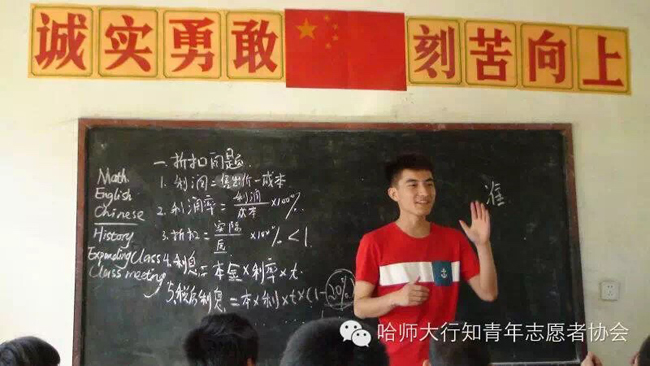 诚实勇敢 刻苦向上
Math.
English
Chinese
History
Expanding Class
Class meeting
一.折扣问题.
1. 利润=售出价-成本
2. 利润率=利润/成本×100%
3. 折扣=实际/原×100%<1.
4. 利息=本金×利率×t
5. 税后利息=本×利×t×(1-20%)
准
哈师大行知青年志愿者协会